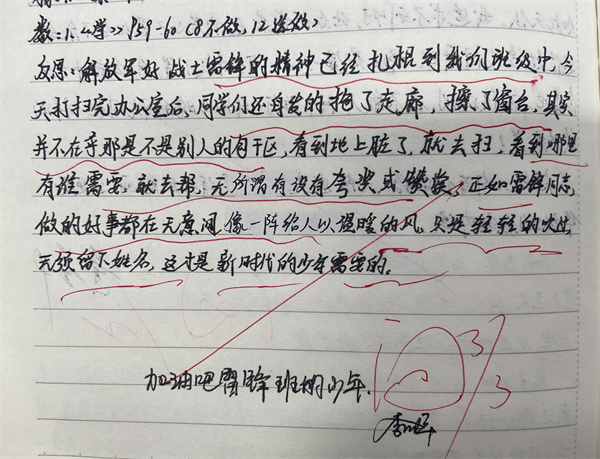 数:1.《学》P59-60(8不做,12选做)
反思:解放军好战士雷锋的精神已经扎根到我们班级中,今
天打扫完办公室后,同学们还自发的拖了走廊,擦了窗台,其实
并不在乎那是不是别人的包干区,看到地上脏了,就去扫,看到哪里
有谁需要,就去帮,无所谓有没有夸奖或赞赏,正如雷锋同志
做的好事都在无意间像一阵给人以温暖的风,只是轻轻的吹过
无须留下姓名,这才是新时代的少年需要的。
加油吧雷锋班的少年.
10 3/3